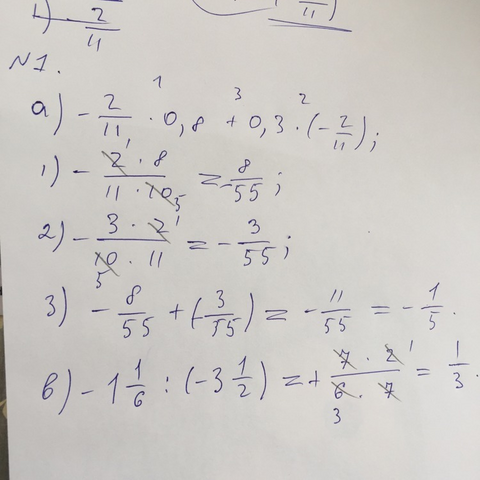 1) - 2/11
11)
N1.
a) - 2/11 · 0,8 + 0,3 · (- 2/11);
1 3 2
1) - (2 · 8)/(11 · 10) = - 8/55;
1 5
2) - (3 · 2)/(10 · 11) = - 3/55;
1 5
3) - 8/55 + (- 3/55) = - 11/55 = - 1/5.
в) - 1 1/6 : (-3 1/2) = + (7 · 2)/(6 · 7) = 1/3.
1 3